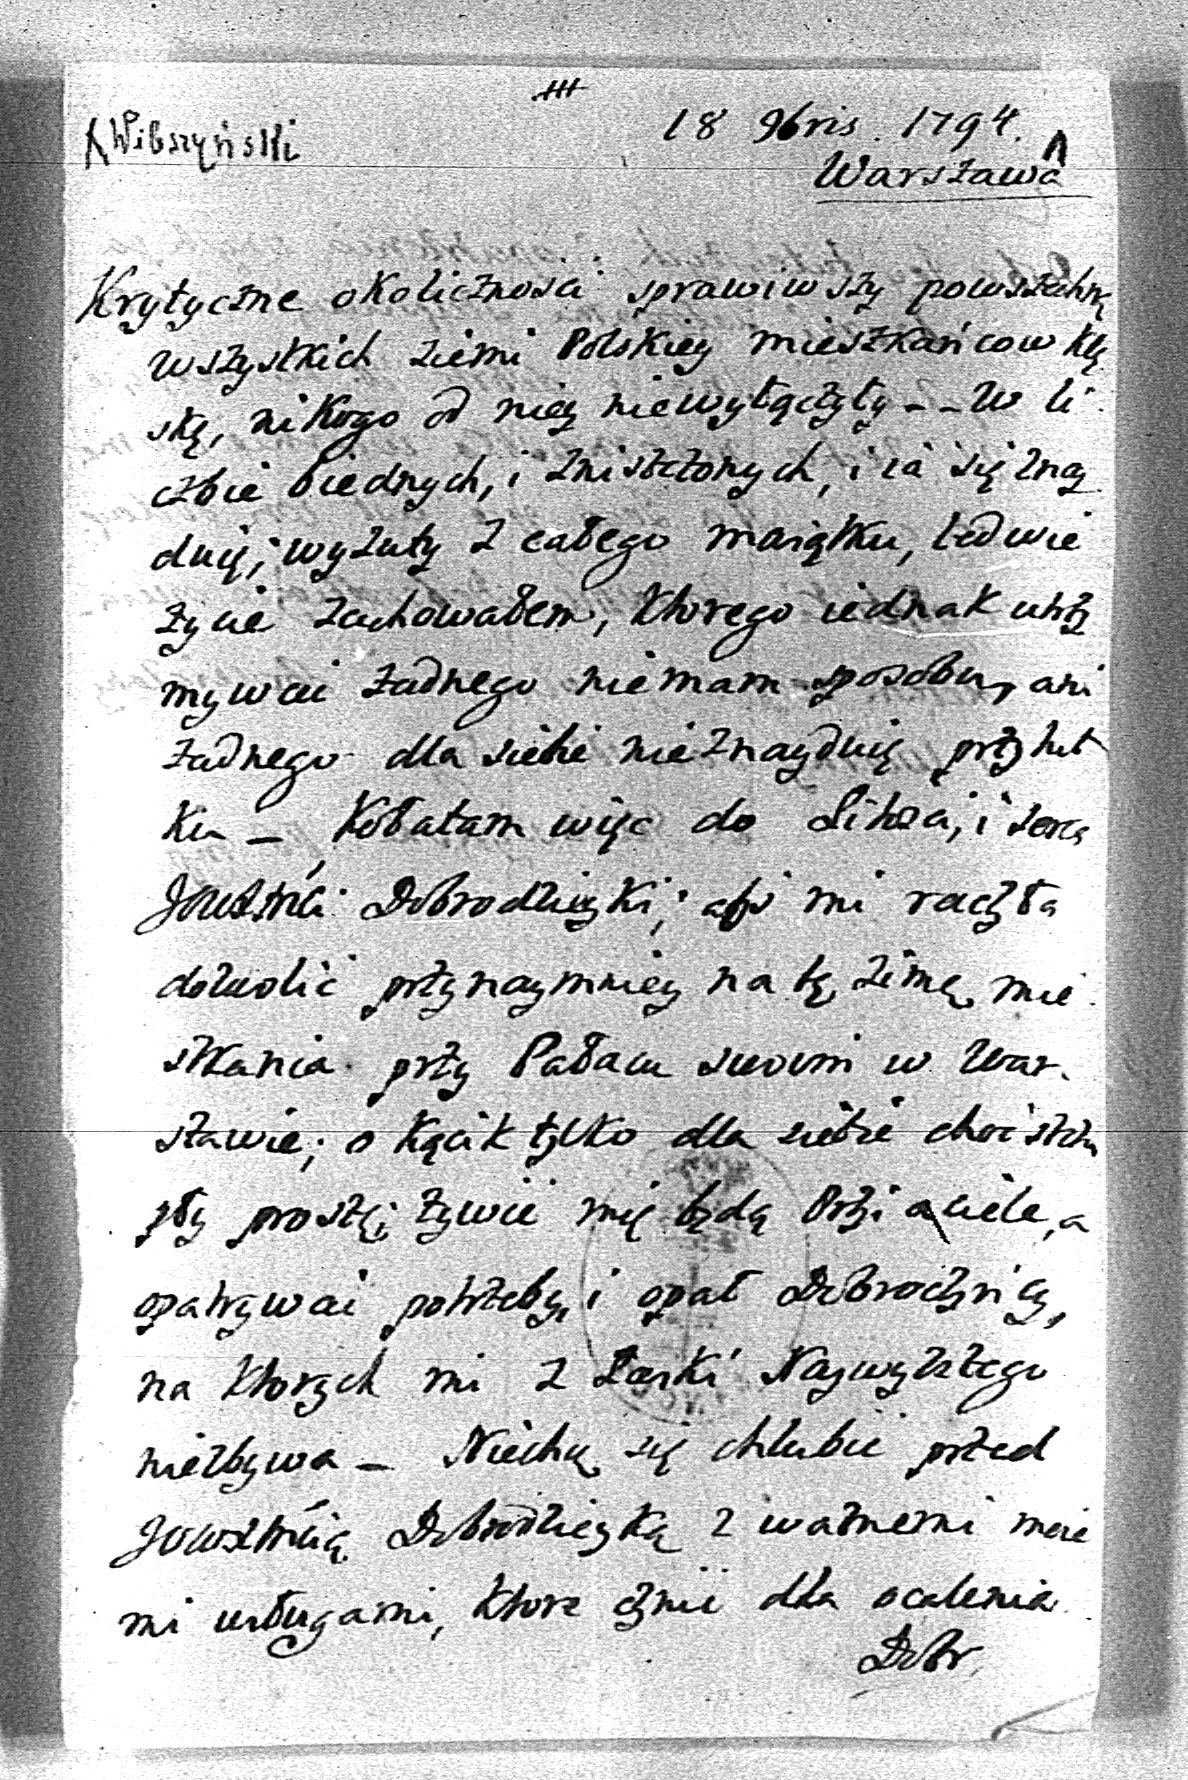 X Wibszyński
18 9bris. 1794.
Warszawa
Krytyczne okolicznosci sprawiwszy powszechną
wszystkich ziemi Polskiey mieszkańcow klę
skę, nikogo od niey niewyłączyły -- W li
czbie biednych, i zniszczonych, i ia się znay
duię; wyzuty z całego maiątku, ledwie
życie zachowałem, ktorego iednak utrzy
mywai żadnego niemam sposobu, ani
żadnego dla siebie nieznayduię przytuł
ku — Kołatam więc do Litości, i serca
Dobrodzieyki; aby mi raczyła
dozwolić przynaymniey na tę zimę mie
szkania przy Pałacu swoim w War
szawie; o kącik tylko dla siebie choć szczu
pły proszę; żywić mię będą Przyiaciele, a
opatrywai potrzeby, i opał Dobroczyńcy,
na ktorych mi z Łaski Naywyższego
niezbywa — Niechcę się chlubić przed
Dobrodzieyką z ważnemi moie
mi usługami, ktore czynię dla ocalenia
Dobr